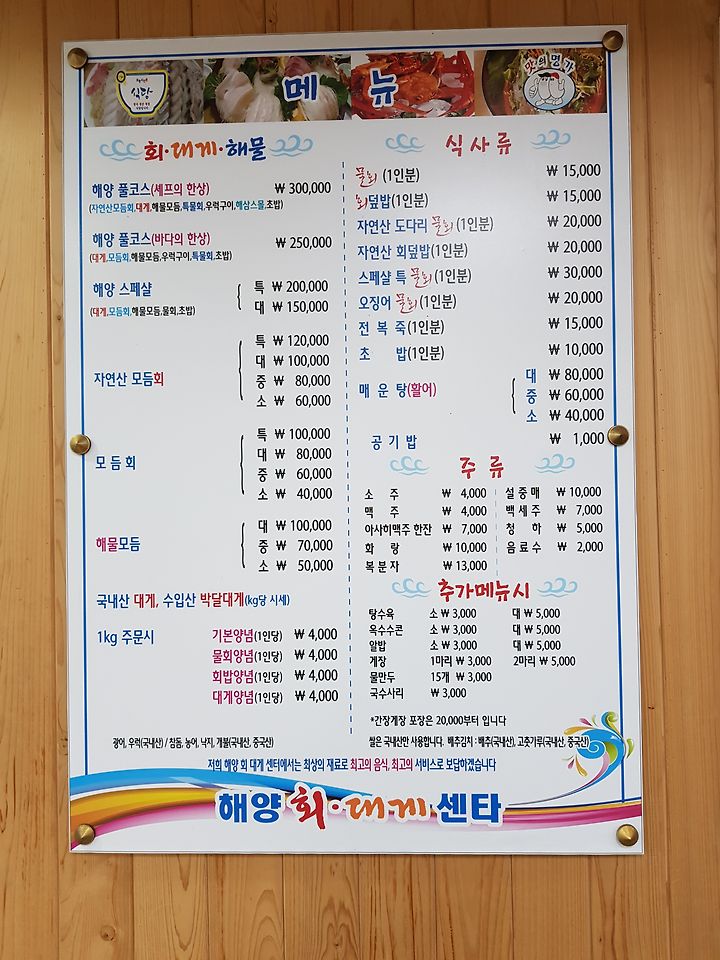 식당
메 뉴
맛의명가
회·대게·해물
해양 풀코스(셰프의 한상) ₩ 300,000
(자연산모듬회,대게,해물모듬,특물회,우럭구이,해삼스물,초밥)
해양 풀코스(바다의 한상) ₩ 250,000
(대게,모듬회,해물모듬,우럭구이,특물회,초밥)
해양 스페샬
특 ₩ 200,000
대 ₩ 150,000
(대게,모듬회,해물모듬,물회,초밥)
자연산 모듬회
특 ₩ 120,000
대 ₩ 100,000
중 ₩ 80,000
소 ₩ 60,000
모 듬 회
특 ₩ 100,000
대 ₩ 80,000
중 ₩ 60,000
소 ₩ 40,000
해물모듬
대 ₩ 100,000
중 ₩ 70,000
소 ₩ 50,000
국내산 대게, 수입산 박달대게(kg당 시세)
1kg 주문시 기본양념(1인당) ₩ 4,000
물회양념(1인당) ₩ 4,000
회밥양념(1인당) ₩ 4,000
대게양념(1인당) ₩ 4,000
식사류
물회 (1인분) ₩ 15,000
회덮밥(1인분) ₩ 15,000
자연산 도다리 물회(1인분) ₩ 20,000
자연산 회덮밥(1인분) ₩ 20,000
스페샬 특 물회(1인분) ₩ 30,000
오징어 물회(1인분) ₩ 20,000
전 복 죽(1인분) ₩ 15,000
초 밥(1인분) ₩ 10,000
매 운 탕(활어)
대 ₩ 80,000
중 ₩ 60,000
소 ₩ 40,000
공 기 밥 ₩ 1,000
주 류
소 주 ₩ 4,000 설 중 매 ₩ 10,000
맥 주 ₩ 4,000 백 세 주 ₩ 7,000
아사히맥주 한잔 ₩ 7,000 청 하 ₩ 5,000
화 랑 ₩ 10,000 음 료 수 ₩ 2,000
복 분 자 ₩ 13,000
추가메뉴시
탕수육 소 ₩ 3,000 대 ₩ 5,000
옥수수콘 소 ₩ 3,000 대 ₩ 5,000
알밥 소 ₩ 3,000 대 ₩ 5,000
게장 1마리 ₩ 3,000 2마리 ₩ 5,000
물만두 15개 ₩ 3,000
국수사리 ₩ 3,000
*간장게장 포장은 20,000부터 입니다
광어, 우럭(국내산) / 참돔, 농어, 낙지, 개불(국내산, 중국산)
쌀은 국내산만 사용합니다. 배추김치 : 배추(국내산), 고춧가루(국내산, 중국산)
저희 해양 회 대게 센터에서는 최상의 재료로 최고의 음식, 최고의 서비스로 보답하겠습니다
해양 회·대게 센타